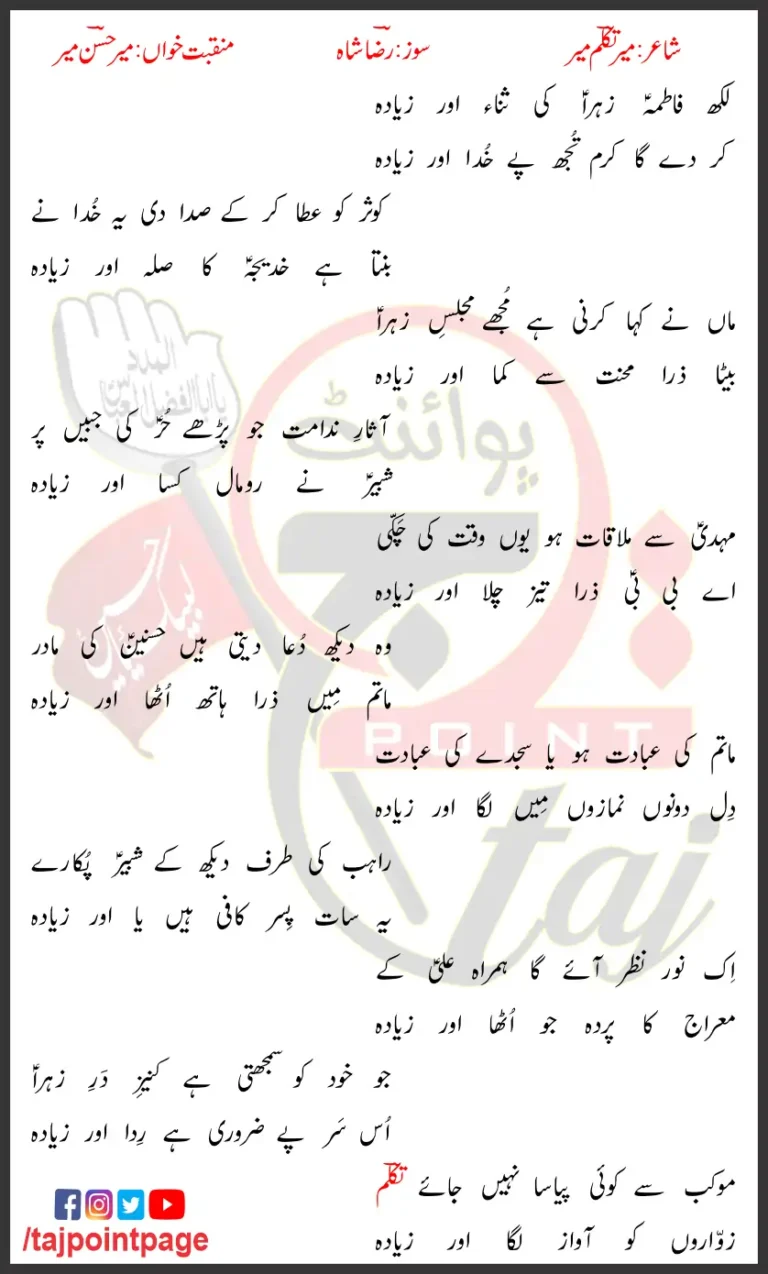 شاعر: میر تکلّم میر    سوز: رضا شاہ    منقبت خواں: میر حسن میر
لکھ فاطمہؑ زہراؑ کی ثناء اور زیادہ
کر دے گا کرم تُجھ پے خُدا اور زیادہ
کوثر کو عطا کر کے صدا دی یہ خُدا نے
بنتا ہے خدیجہؑ کا صلہ اور زیادہ
ماں نے کہا کرنی ہے مُجھے مجلسِ زہراؑ
بیٹا ذرا محنت سے کما اور زیادہ
آثارِ ندامت جو پڑھے حُرؑ کی جبیں پر
شبیرؑ نے رومال کسا اور زیادہ
مہدیؑ سے ملاقات ہو یوں وقت کی چَکّی
اے بی بیؑ ذرا تیز چلا اور زیادہ
وہ دیکھ دُعا دیتی ہیں حسنینؑ کی مادر
ماتم مِیں ذرا ہاتھ اُٹھا اور زیادہ
ماتم کی عبادت ہو یا سجدے کی عبادت
دِل دونوں نمازوں مِیں لگا اور زیادہ
راہب کی طرف دیکھ کے شبیرؑ پُکارے
یہ سات پِسر کافی ہیں یا اور زیادہ
اِک نور نظر آئے گا ہمراہ علیؑ کے
معراج کا پردہ جو اُٹھا اور زیادہ
جو خود کو سمجھتی ہے کنیزِ دَرِ زہراؑ
اُس سَر پے ضروری ہے رِدا اور زیادہ
موکب سے کوئی پیاسا نہیں جائے تکلّم
زوّاروں کو آواز لگا اور زیادہ
المدد
یا ابالفضل العباس
لبیک یا حسین
تاج پوائنٹ
POINT
taj
/tajpointpage